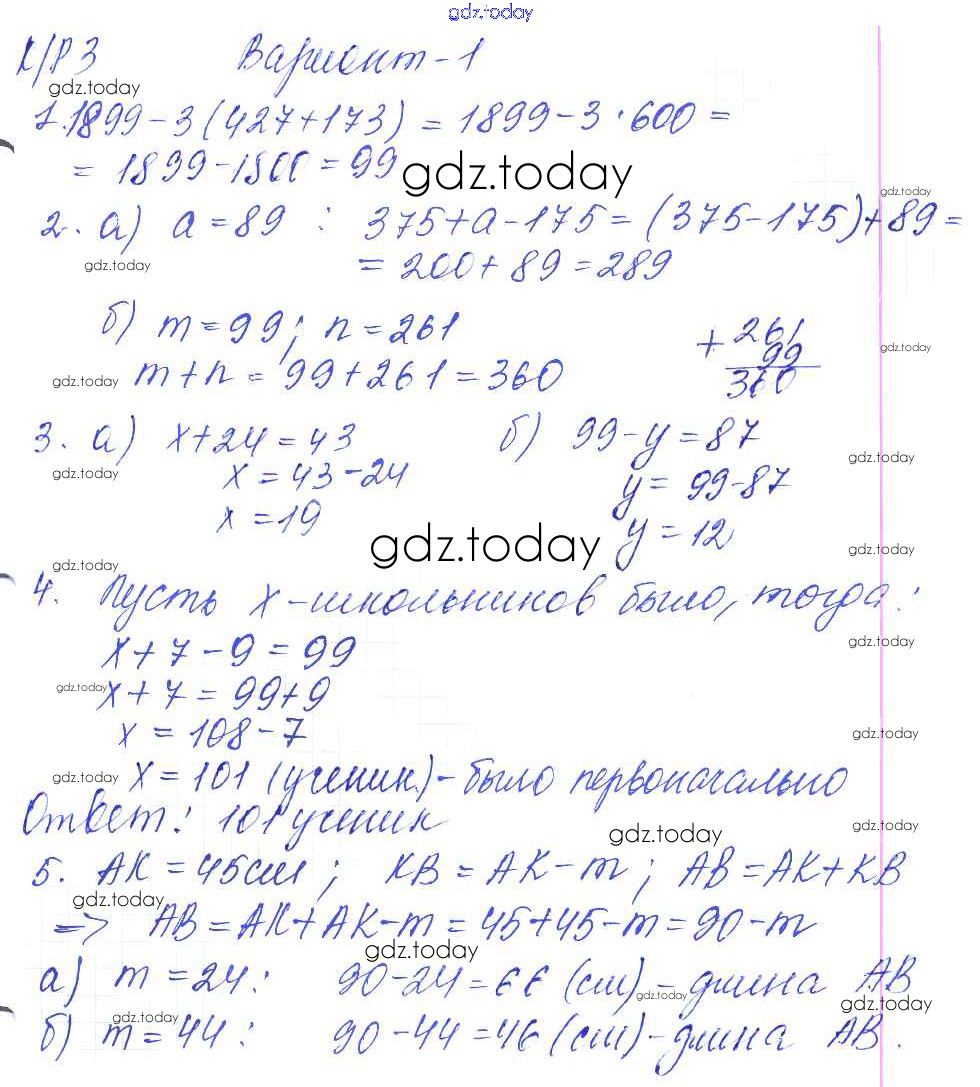 gdz.today
К/Р 3 Вариант-1
gdz.today
1. 1899-3(427+173) = 1899-3·600 =
= 1899-1800 = 99 gdz.today
gdz.today
2. а) a=89 : 375+a-175=(375-175)+89=
gdz.today = 200+89=289
б) m=99; n=261 +261
99 gdz.today
gdz.today m+n = 99+261=360 360
3. а) x+24=43 б) 99-y=87
gdz.today x=43-24 y= 99-87 gdz.today
x=19 gdz.today y=12 gdz.today
gdz.today
4. Пусть x-школьников было, тогда:
x+7-9=99 gdz.today
gdz.today x+7=99+9
x = 108-7 gdz.today
gdz.today x=101 (ученик.)-было первоначально
Ответ: 101 ученик gdz.today gdz.today
5. AK=45см; KB=AK-m; AB=AK+KB
gdz.today
=> AB=AK+AK-m=45+45-m=90-m
gdz.today
а) m=24: 90-24=66 (см) gdz.today - длина AB
gdz.today gdz.today
б) m=44: 90-44=46 (см)-длина AB.